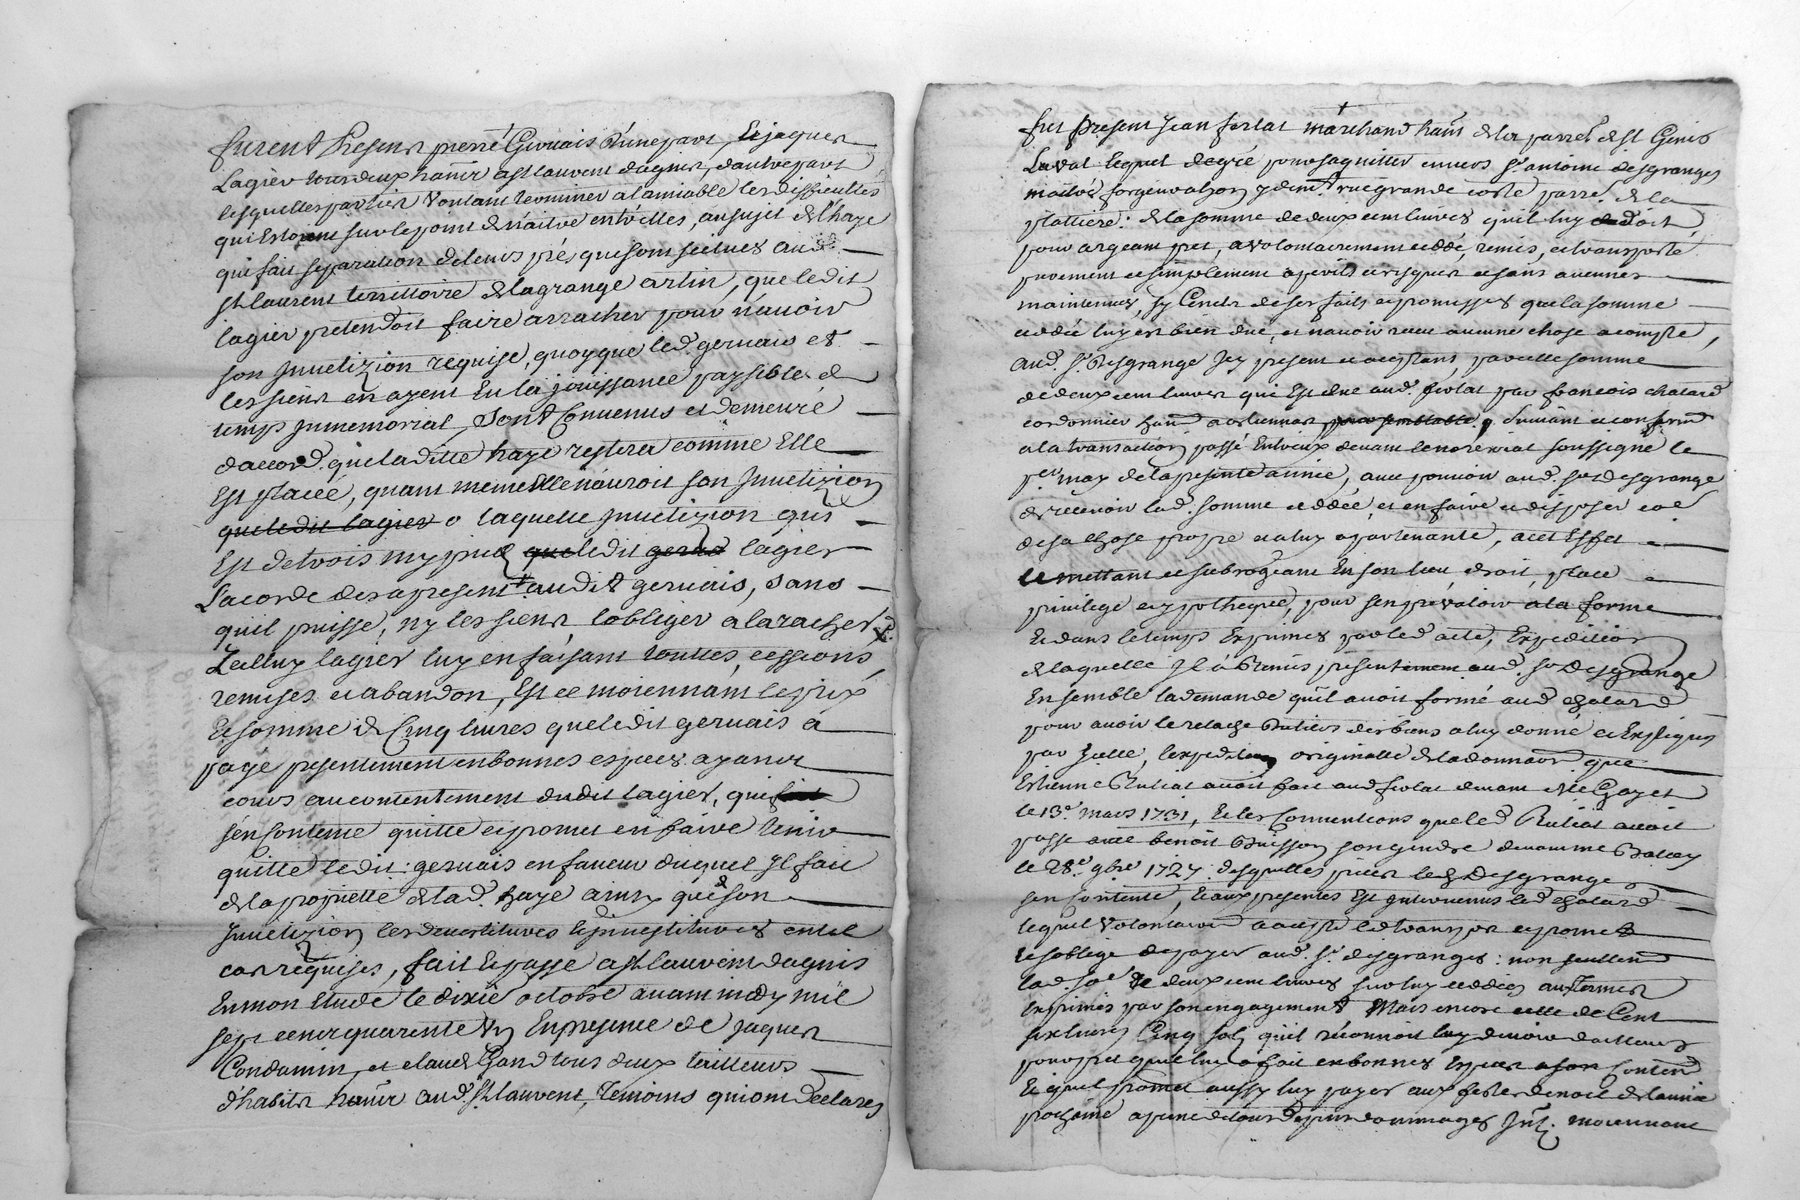 furent Presens pierre Gervais d'une part, Et jaques
Lagier tous deux habitts a st laurent dagnis, d'autre part
lesquelles parties Voulant terminer a lamiable les difficultés
qui Estoient sur le point de naitre entre elles, au sujet de l'haye
qui fait separation de leurs prés que sont scitués aud.
st laurent territtoire de la grange artin, que le dit
lagier pretendoit faire arracher pour n'avoir
son Invetizion requise, quoyque led. gervais et
les siens en ayent Eu la jouissance paysible de
temps jmmemorial, Sont Convenus et demeure
d'accord que la ditte haye restera comme Elle
Est placée, quant meme Elle n'auroit son Invetizion
que le dit lagier o laquelle Invetizion qui
Est de trois my pied que ledit lagier
L'acorde des a present audit gervais, sans
quil puisse, ny les siens l'obliger a laracher
Icelluy lagier luy en faisant touttes cessions,
remises et abandon, Est ce moiennant le prix
Et somme de Cinq livres que le dit gervais a
payé presentement en bonnes especes ayant
cours au contentement dudit lagier, qui
s'en contente quitte et promet en faire tenir
quitte ledit gervais en faveur duquel Il fait
de la proprietté de lad. haye ainsy que de son
Invetizion les devestitures Et investitures en tel
cas requises, fait Et passe a st laurent dagnis
En mon Etude le dixie octobre avant midy mil
sept cent quarente Un En presence de jaques
Condamin, et claude Gand tous deux tailleurs
d'habits habitts aud. st laurent, temoins qui ont declarés
fut present Jean ferlat marchand habitt de la parre de st Genis
Laval lequel de gré pour saquitter envers sr. antoine desgranges
maitre forgeur a lyon y demt rue grande coste parre. de la
plattiere: de la somme de deux cent livres qu'il luy doit,
pour argeant pret, a volontairement ceddé, remis, et transporté
purement et simplement a perils et risques et sans aucunes
maintenues, sy Cen'est de ses faits et promesses que la somme
ceddée luy est bien due, et n'avoir reçu aucune chose a compte,
aud. sr. Desgrange Icy present et acceptant, pareille somme
de deux cent livres qui Est due aud. ferlat par francois chatard
cordonnier suivant et conform
a la transaction passé Entreux devant le no.re royal soussigné le
per may de la presente année, avec pouvoir aud. sr desgrange
de recevoir lad. somme ceddée, et en faire et disposer coe
de sa chose propre et a luy apartenante, a cet Effet
le mettant et subrogeant En son lieu, droit, place
privilege et ypotheque, pour s'en prevaloir a la forme
Et dans le temps Exprimés par led. acte, Expedition
de laquelle Il a Remis presentement aud. sr Desgrange
Ensemble la demande quil avoit formé aud. chatard
pour avoir le relache des biens a luy donné et Expliqués
par Icelle, l'expedition originalle de la donnaon que
Estienne avoit fait aud ferlat devant Me Gayet
le 13e. mars 1731, Et les Conventions que led. avoit
passe avec benoit Buisson son gendre devant me
le 28e. 9bre 1727: desquelles pieces led. Desgrange
s'en contente, Et aux presentes Est Intervenus led. chatard
lequel Volontairemt a accepté led. transport et promet
Et s'oblige de payer aud. sr. desgranges: non seullement
lad. soe de deux cent livres sur luy ceddées aux termes
Exprimés par son engagement Mais encore celle de Cent
six livres Cinq sols quil reconnoit luy devoir d'ailleurs
pour pret quil luy a fait en bonnes Especes a son contend
Et quil promet aussy luy payer aux festes de noel de l'année
prochaine a peine de tous depens dommages Int. moiennant